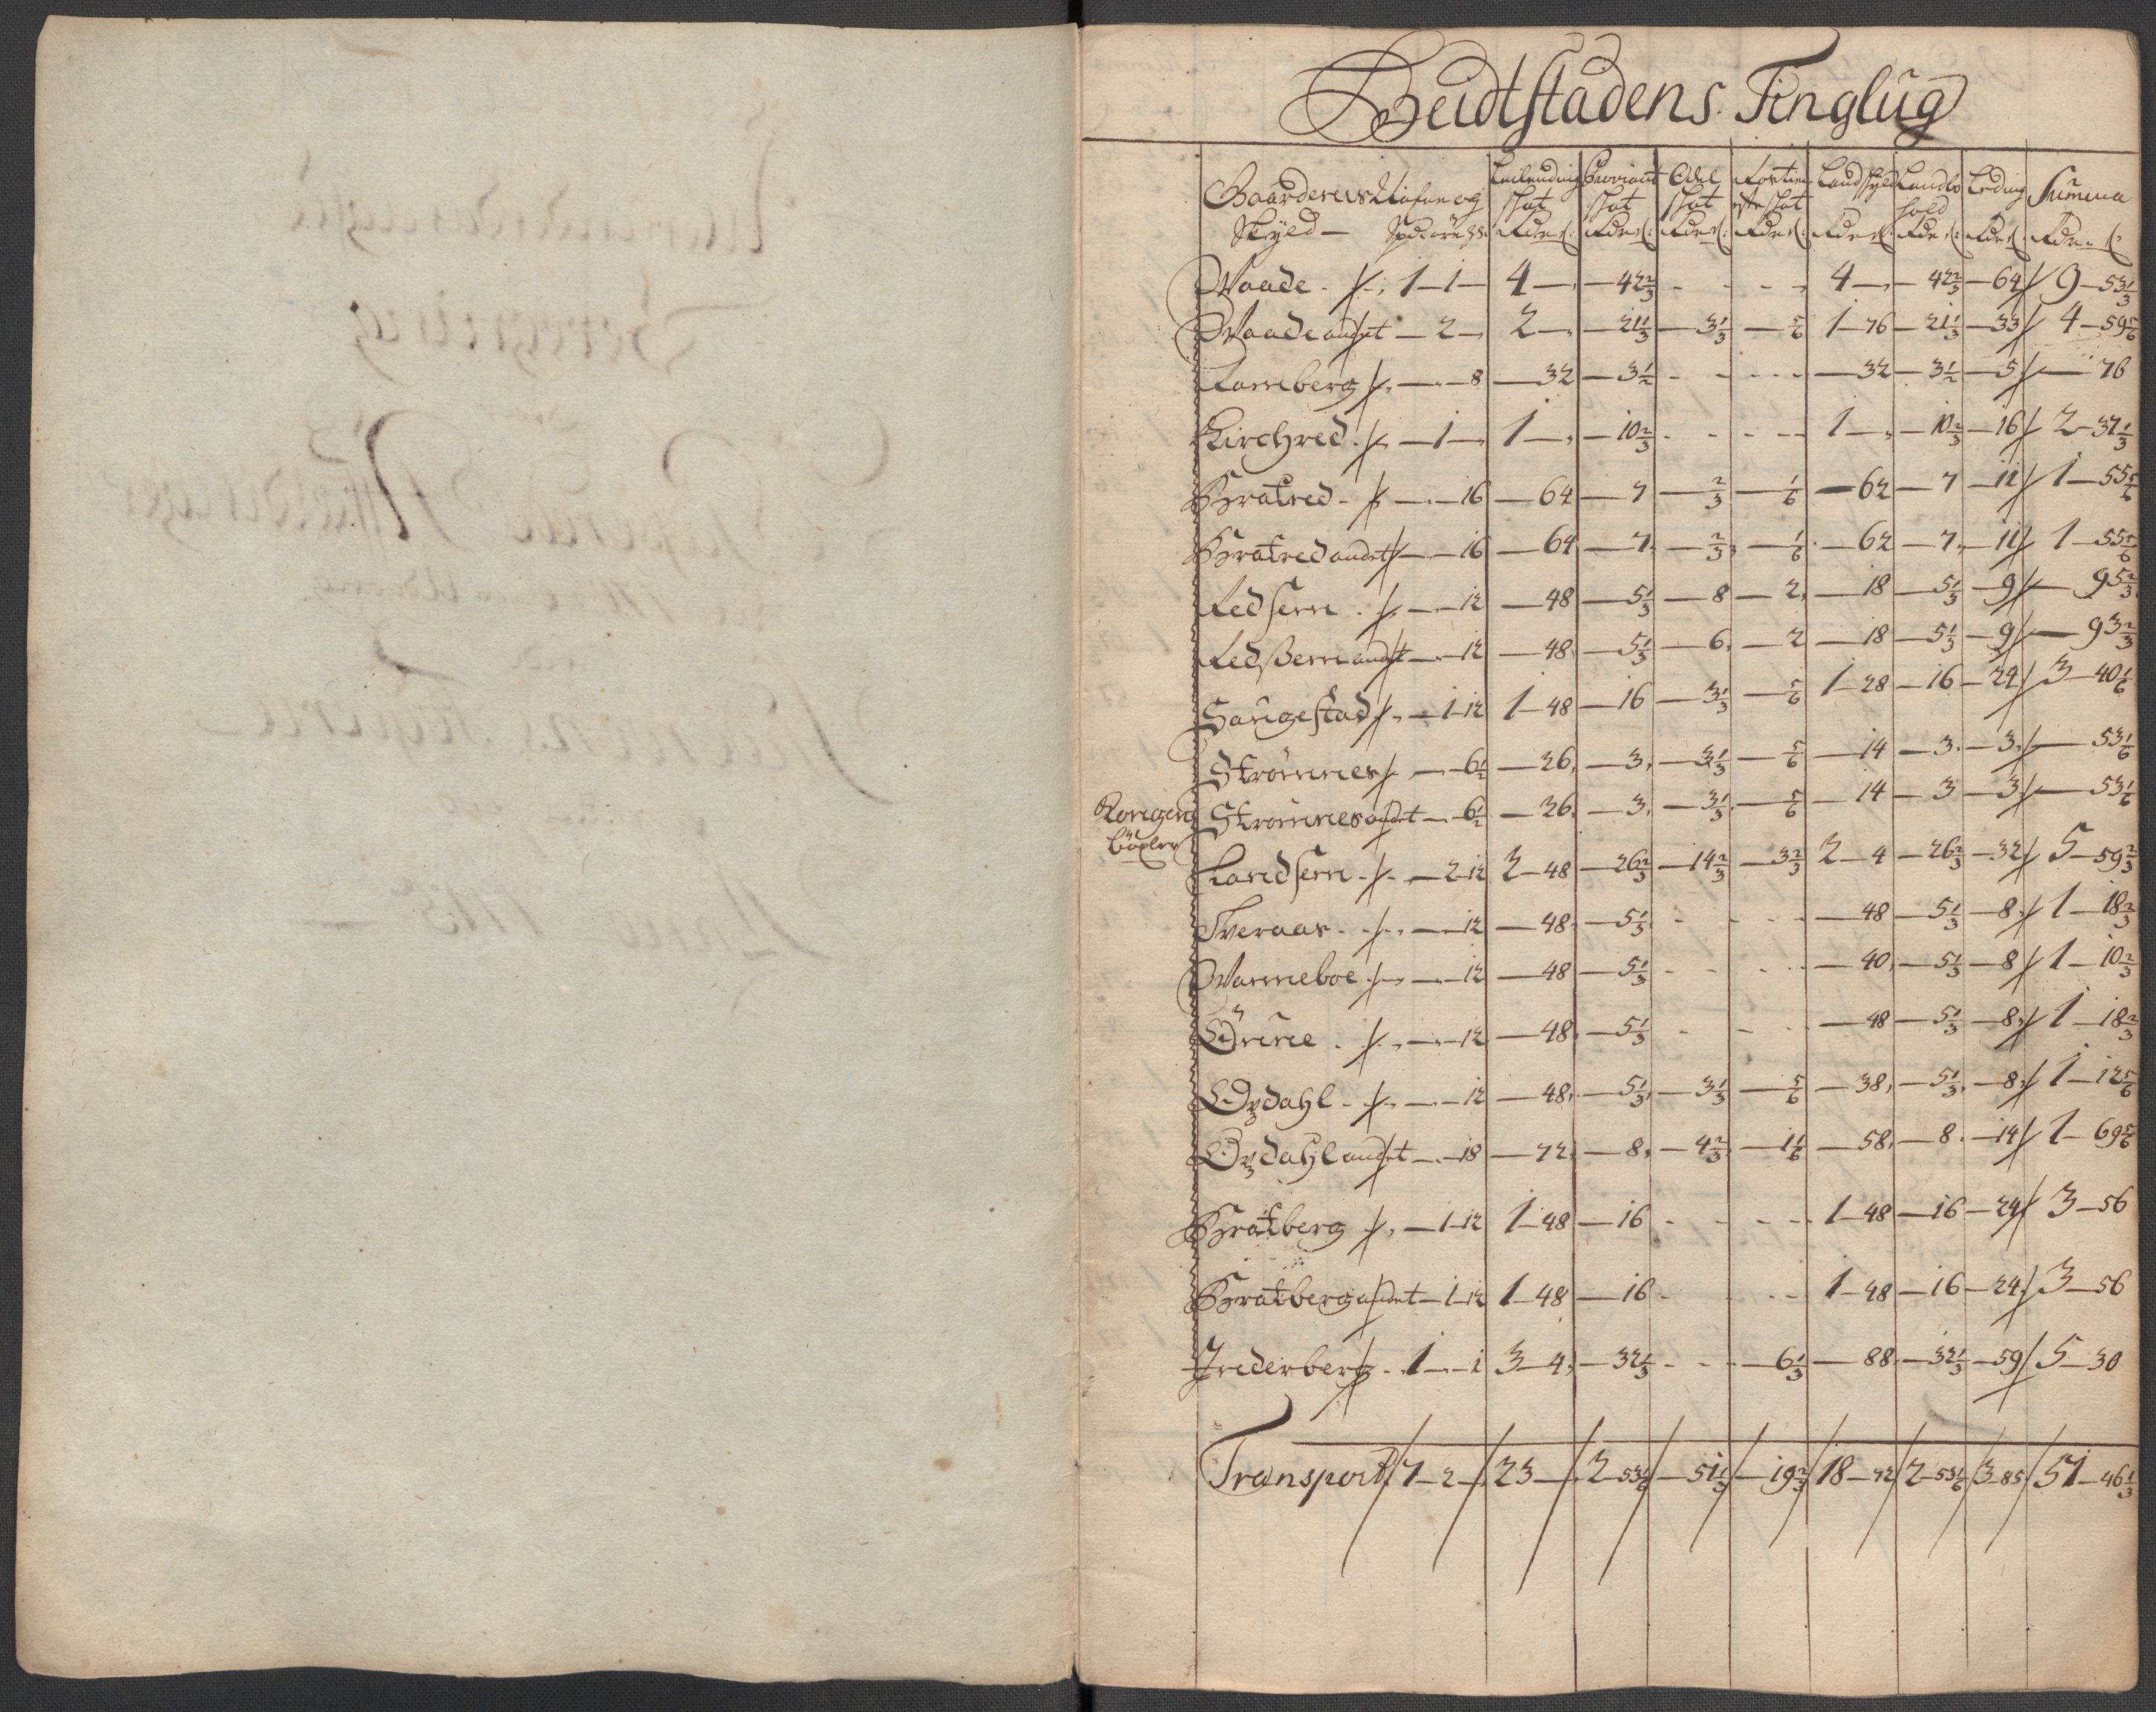 Beidtstadens Tinglug
Gaardernes Nafne og Skyld — Spd: ör: ms: | Leilendings skat Rdr s: | Proviant skat Rdr s: | Odel skat Rdr s: | Rostieniste skat Rdr s: | Landskyld Rdr s: | Landbo hold Rdr s: | Leding Rdr s: | Summa Rdr s:
Waade - 1-1- | 4- | -42 2/3 | - | - | 4- | -42 2/3 | -64 | 9-53 1/3
Waade andet - 2- | 2- | -21 1/3 | -3 1/3 | -5/6 | 1-76 | -21 1/3 | -33 | 4-59 5/6
Romberg - 8 | -32 | -3 1/2 | - | - | -32 | -3 1/2 | -5 | -76
Kirchred - 1- | 1- | -10 2/3 | - | - | 1- | -10 2/3 | -16 | 2-37 1/3
Bratred - 16 | -64 | -7 | -2/3 | -1/6 | -62 | -7 | -11 | 1-55 5/6
Bratred andet - 16 | -64 | -7 | -2/3 | -1/6 | -62 | -7 | -11 | 1-55 5/6
Redsem - 12 | -48 | -5 1/3 | -8 | -2 | -18 | -5 1/3 | -9 | -95 2/3
Redssem andet - 12 | -48 | -5 1/3 | -6 | -2 | -18 | -5 1/3 | -9 | -93 2/3
Haugestad - 1-12 | 1-48 | -16 | -3 1/3 | -5/6 | 1-28 | -16 | -24 | 3-40 1/6
Strömnes - 6 1/2 | -26 | -3 | -3 1/3 | -5/6 | -14 | -3 | -3 | -53 1/6
Kongens böxler
Strömnes andet - 6 1/2 | -26 | -3 | -3 1/3 | -5/6 | -14 | -3 | -3 | -53 1/6
Landsem - 2-12 | 2-48 | -26 2/3 | -14 2/3 | -3 2/3 | 2-4 | -26 2/3 | -32 | 5-59 2/3
Tveraas - 12 | -48 | -5 1/3 | - | - | -48 | -5 1/3 | -8 | 1-18 2/3
Wanneboe - 12 | -48 | -5 1/3 | - | - | -40 | -5 1/3 | -8 | 1-10 2/3
- 12 | -48 | -5 1/3 | - | - | -48 | -5 1/3 | -8 | 1-18 2/3
Öxdahl - 12 | -48 | -5 1/3 | -3 1/3 | -5/6 | -38 | -5 1/3 | -8 | 1-12 5/6
Öxdahl andet - 18 | -72 | -8 | -4 2/3 | -1 1/6 | -58 | -8 | -14 | 1-69 5/6
Bratberg - 1-12 | 1-48 | -16 | - | - | 1-48 | -16 | -24 | 3-56
Bratberg andet - 1-12 | 1-48 | -16 | - | - | 1-48 | -16 | -24 | 3-56
Inderberg - 1-1 | 3-4 | -32 1/3 | - | -6 1/3 | -88 | -32 1/3 | -59 | 5-30
Transport 7-2- | 23- | 2-53 1/6 | -51 1/3 | -19 2/3 | 18-72 | 2-53 1/6 | 3-85 | 51-46 1/3